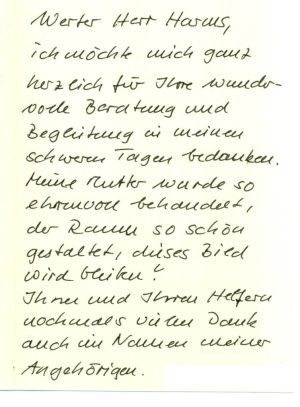 Werter Herr Harms,
ich möchte mich ganz
herzlich für Ihre wunder-
volle Beratung und
Begleitung in meinen
schweren Tagen bedanken.
Meine Mutter wurde so
ehrenvoll behandelt,
der Raum so schön
gestaltet, dieses Bild
wird bleiben!
Ihnen und Ihren Helfern
nochmals vielen Dank
auch im Namen meiner
Angehörigen.